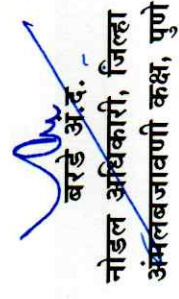 बरडे अ.द.
नोडल अधिकारी, जिल्हा
अंमलबजावणी कक्ष, पुणे